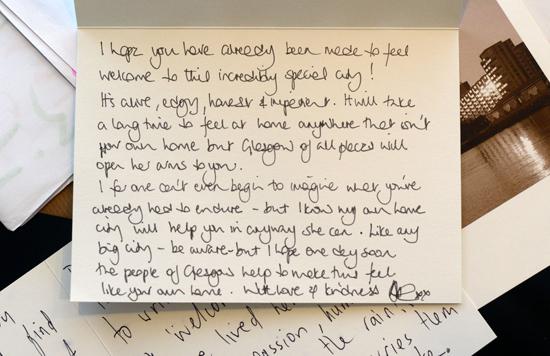 I hope you have already been made to feel
welcome to this incredibly special city!
It's alive, edgy, honest & impudent. It will take
a long time to feel at home anywhere that isn't
your own home but Glasgow of all places will
open her arms to you.
I for one can't even begin to imagine what you've
already had to endure - but I know my own home
city will help you in anyway she can. Like any
big city - be aware - but I hope one day soon
the people of Glasgow help to make this feel
like your own home. With love & kindness xoxo
find
to
welco
lived
passion, hum
the rain
them